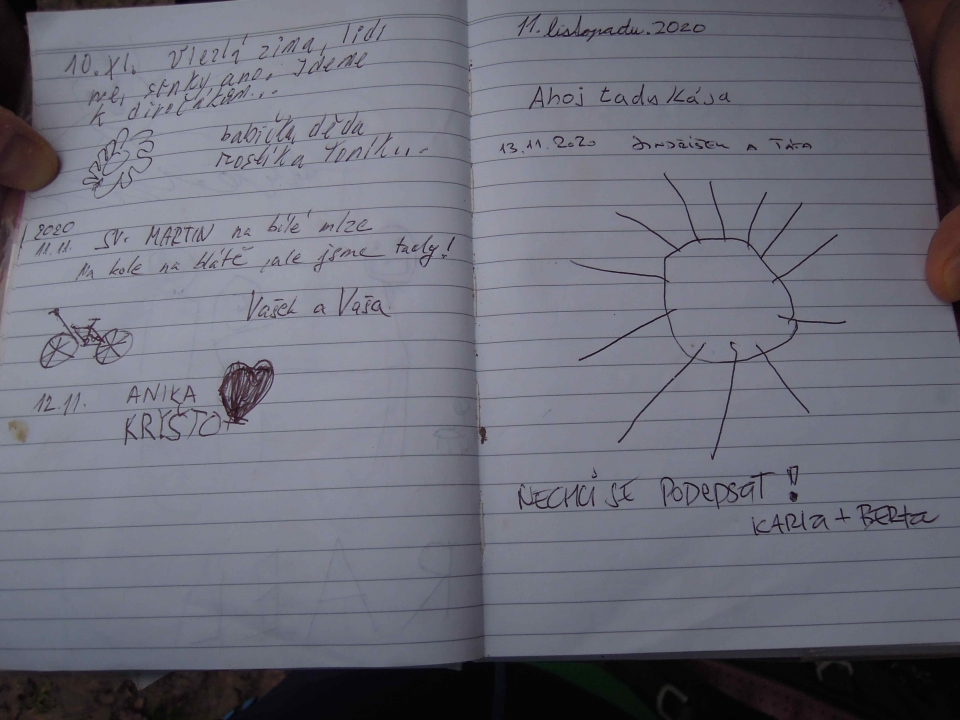 10.XI. Vlezlá zima, lidi
ne, srnky, ano. Jdeme
k divočákům...
babička, děda
Rostíka Toníku..
2020
11.11. SV. MARTIN na bílé mlze
Na kole na blátě, ale jsme tady!
Vašek a Vaša
12.11. ANIKA
KRIŠTOF
11. listopadu. 2020
Ahoj tady Kája
13.11.2020 Jindřišek a Táta
NECHCI SE PODEPSAT!
KARLA + BERTA